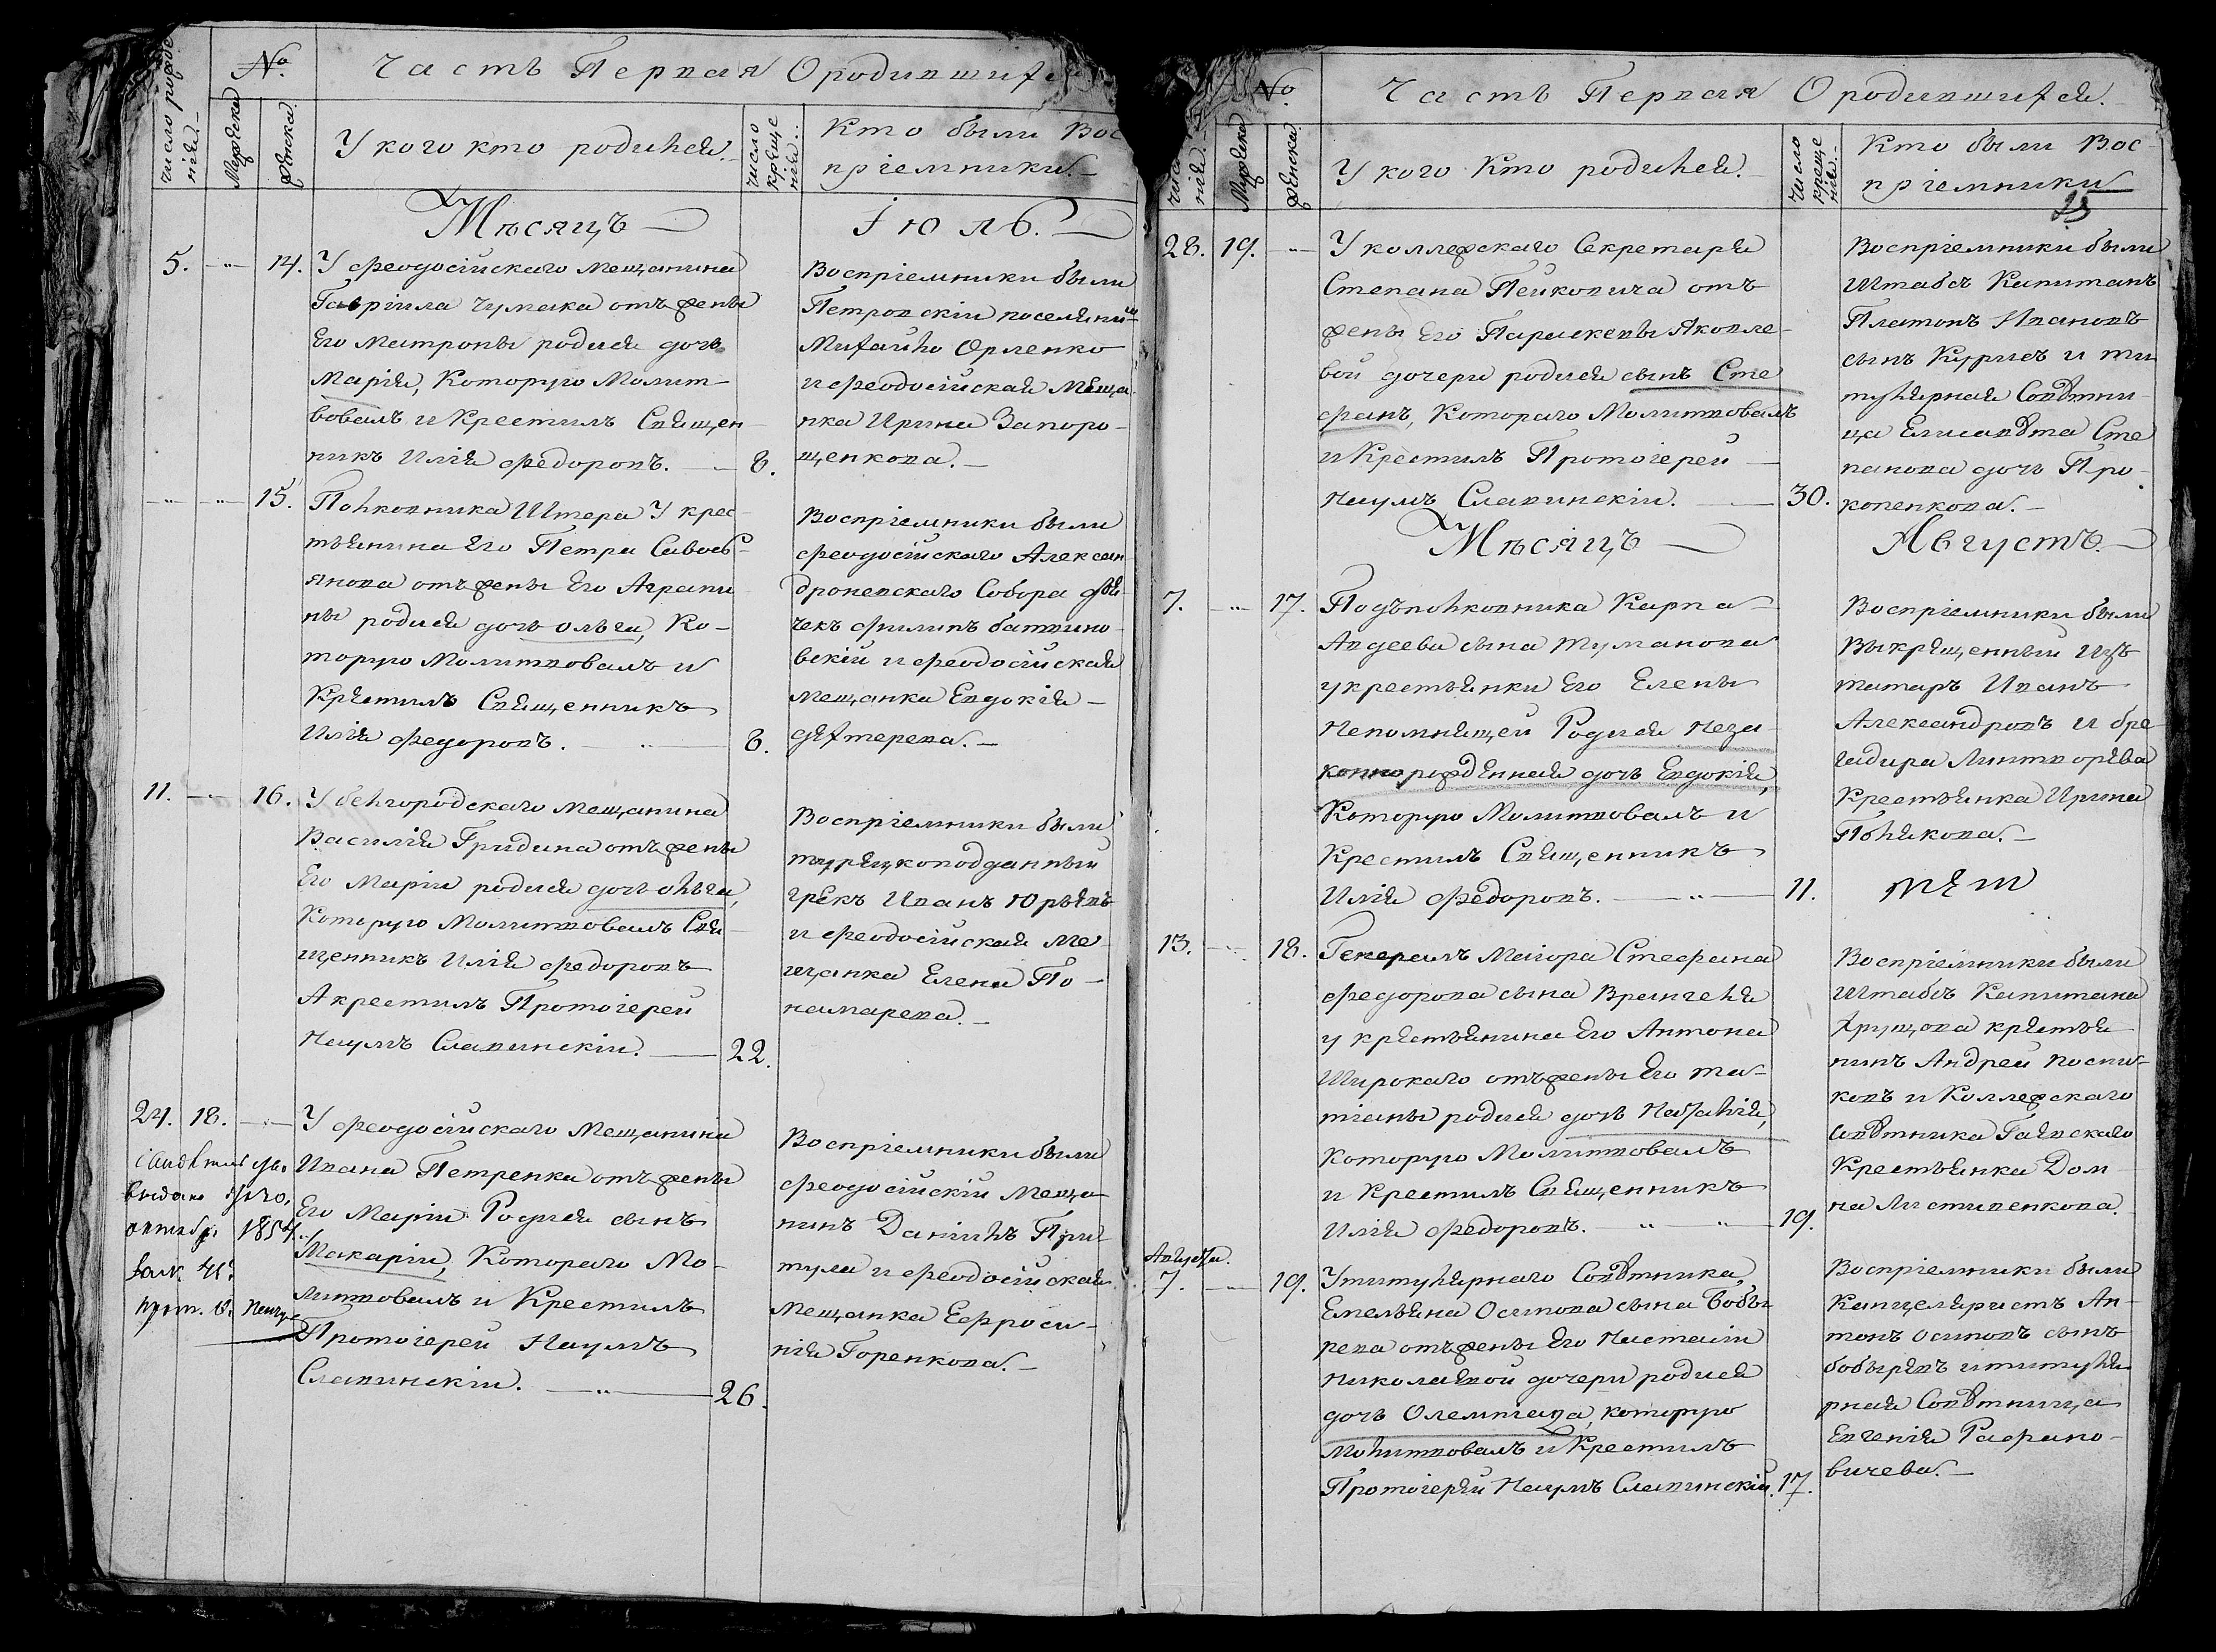 Часть Первая О родившихся
№
Число рожде
нія.
Мужска
женска.
У кого кто родился.
число
креще
нія.
Кто были Вос
пріемники.
Мѣсяцъ
Іюль.
5. 14. У феодосійскаго мещанина
Гавріила Чумака отъ жены
Его Матроны родися дочь
Марія, Которую Молит-
вовалъ и Крестилъ Священ-
никъ Илія Федоровъ. 8.
Воспріемники были
Петровскій поселянин
Михаилъ Орленко
и феодосійская меща-
нка Ирина Запоро-
щенкова.
15. Полковника Штера У крес-
тьянина Его Петра Савось-
янова отъ жены Его Аграпи
ны родися дочь Ольга, Ко-
торую Молитвовалъ и
Крестилъ Священникъ
Илія Федоровъ. 8.
Воспріемники были
феодосійскаго Алексан
дроневскаго Собора дья
чекъ Филипъ
вскій и феодосійская
мещанка Евдокія
Дехтерева.
11. 16. У белгородскаго мещанина
Василія Гридина отъ жены
Его Маріи родися дочь Ольга,
Которую Молитвовалъ Свя-
щенникъ Илія Федоровъ
А крестилъ Протоіерей
Наумъ Славинскій. 22.
Воспріемники были
турецкоподданный
грекъ Иванъ Юрьевъ
и феодосійская ме-
щанка Елена По-
намарева.
24. 18. У феодосійскаго Мещанина
Ивана Петренка отъ жены
Его Маріи Родися сынъ
Макарій, Котораго Мо-
литвовалъ и Крестилъ
Протоіерей Наумъ
Славинскій. 26.
выдано
октября 1854
Воспріемники были
феодосійскій меща-
нинъ Даніилъ При-
тула и феодосійская
мещанка Ефроси-
нія Горенкова.
№
Часть Первая О родившихся.
нія.
Мужска
женска
У кого Кто родился.
Число
креще
нія.
Кто были Вос-
пріемники
28. 19. У коллежскаго Секретаря
Степана Пейковича отъ
жены Его Параскевы Яковле-
вой дочери родися сынъ Сте
фанъ, Котораго Молитвовалъ
и Крестилъ Протоіерей
Наумъ Славинскій. 30.
Воспріемники были
Штабсъ Капитанъ
Платонъ Ивановъ
сынъ и ти
тулярная Совѣтни-
ца Елисавѣта Сте
панова дочь Про-
копенкова.
Мѣсяцъ
Августъ.
7. 17. Подъполковника Карпа
Авдеева сына Туманова
у крестьянки Его Елены
Непомнящей Родися Неза-
коннорожденная дочь Евдокія,
Которую Молитвовалъ и
Крестилъ Священникъ
Илія Федоровъ. 11.
Воспріемники были
Выкрященный изъ
татаръ Иванъ
Александровъ и бре-
гадира
Крестьянка Ирина
Полякова.
13. 18. Генералъ Маіора Стефана
Федорова сына Врангеля
у крестьянина Его Антона
Широкаго отъ жены Его Та-
тіаны родися дочь Наталія,
Которую Молитвовалъ
и Крестилъ Священникъ
Илія Федоровъ. 19.
Воспріемники были
Штабсъ Капитана
Хрущова крестья
нинъ Андрей Посни-
ковъ и Коллежскаго
Совѣтника Гаевскаго
Крестьянка Дом-
на Листипенкова.
Августа.
7. 19. У титулярнаго Совѣтника,
Емельяна Осипова сына Бобы
рева отъ жены Его Настасіи
Николаевой дочери родися
дочь Олемпіада, которую
Молитвовалъ и Крестилъ
Протоіерей Наумъ Славинскій. 17.
Воспріемники были
Канцеляристъ Ан-
тонъ Осиповъ сынъ
бобыревъ и титуля
рная Совѣтница
Евгенія Рафано-
вичева.